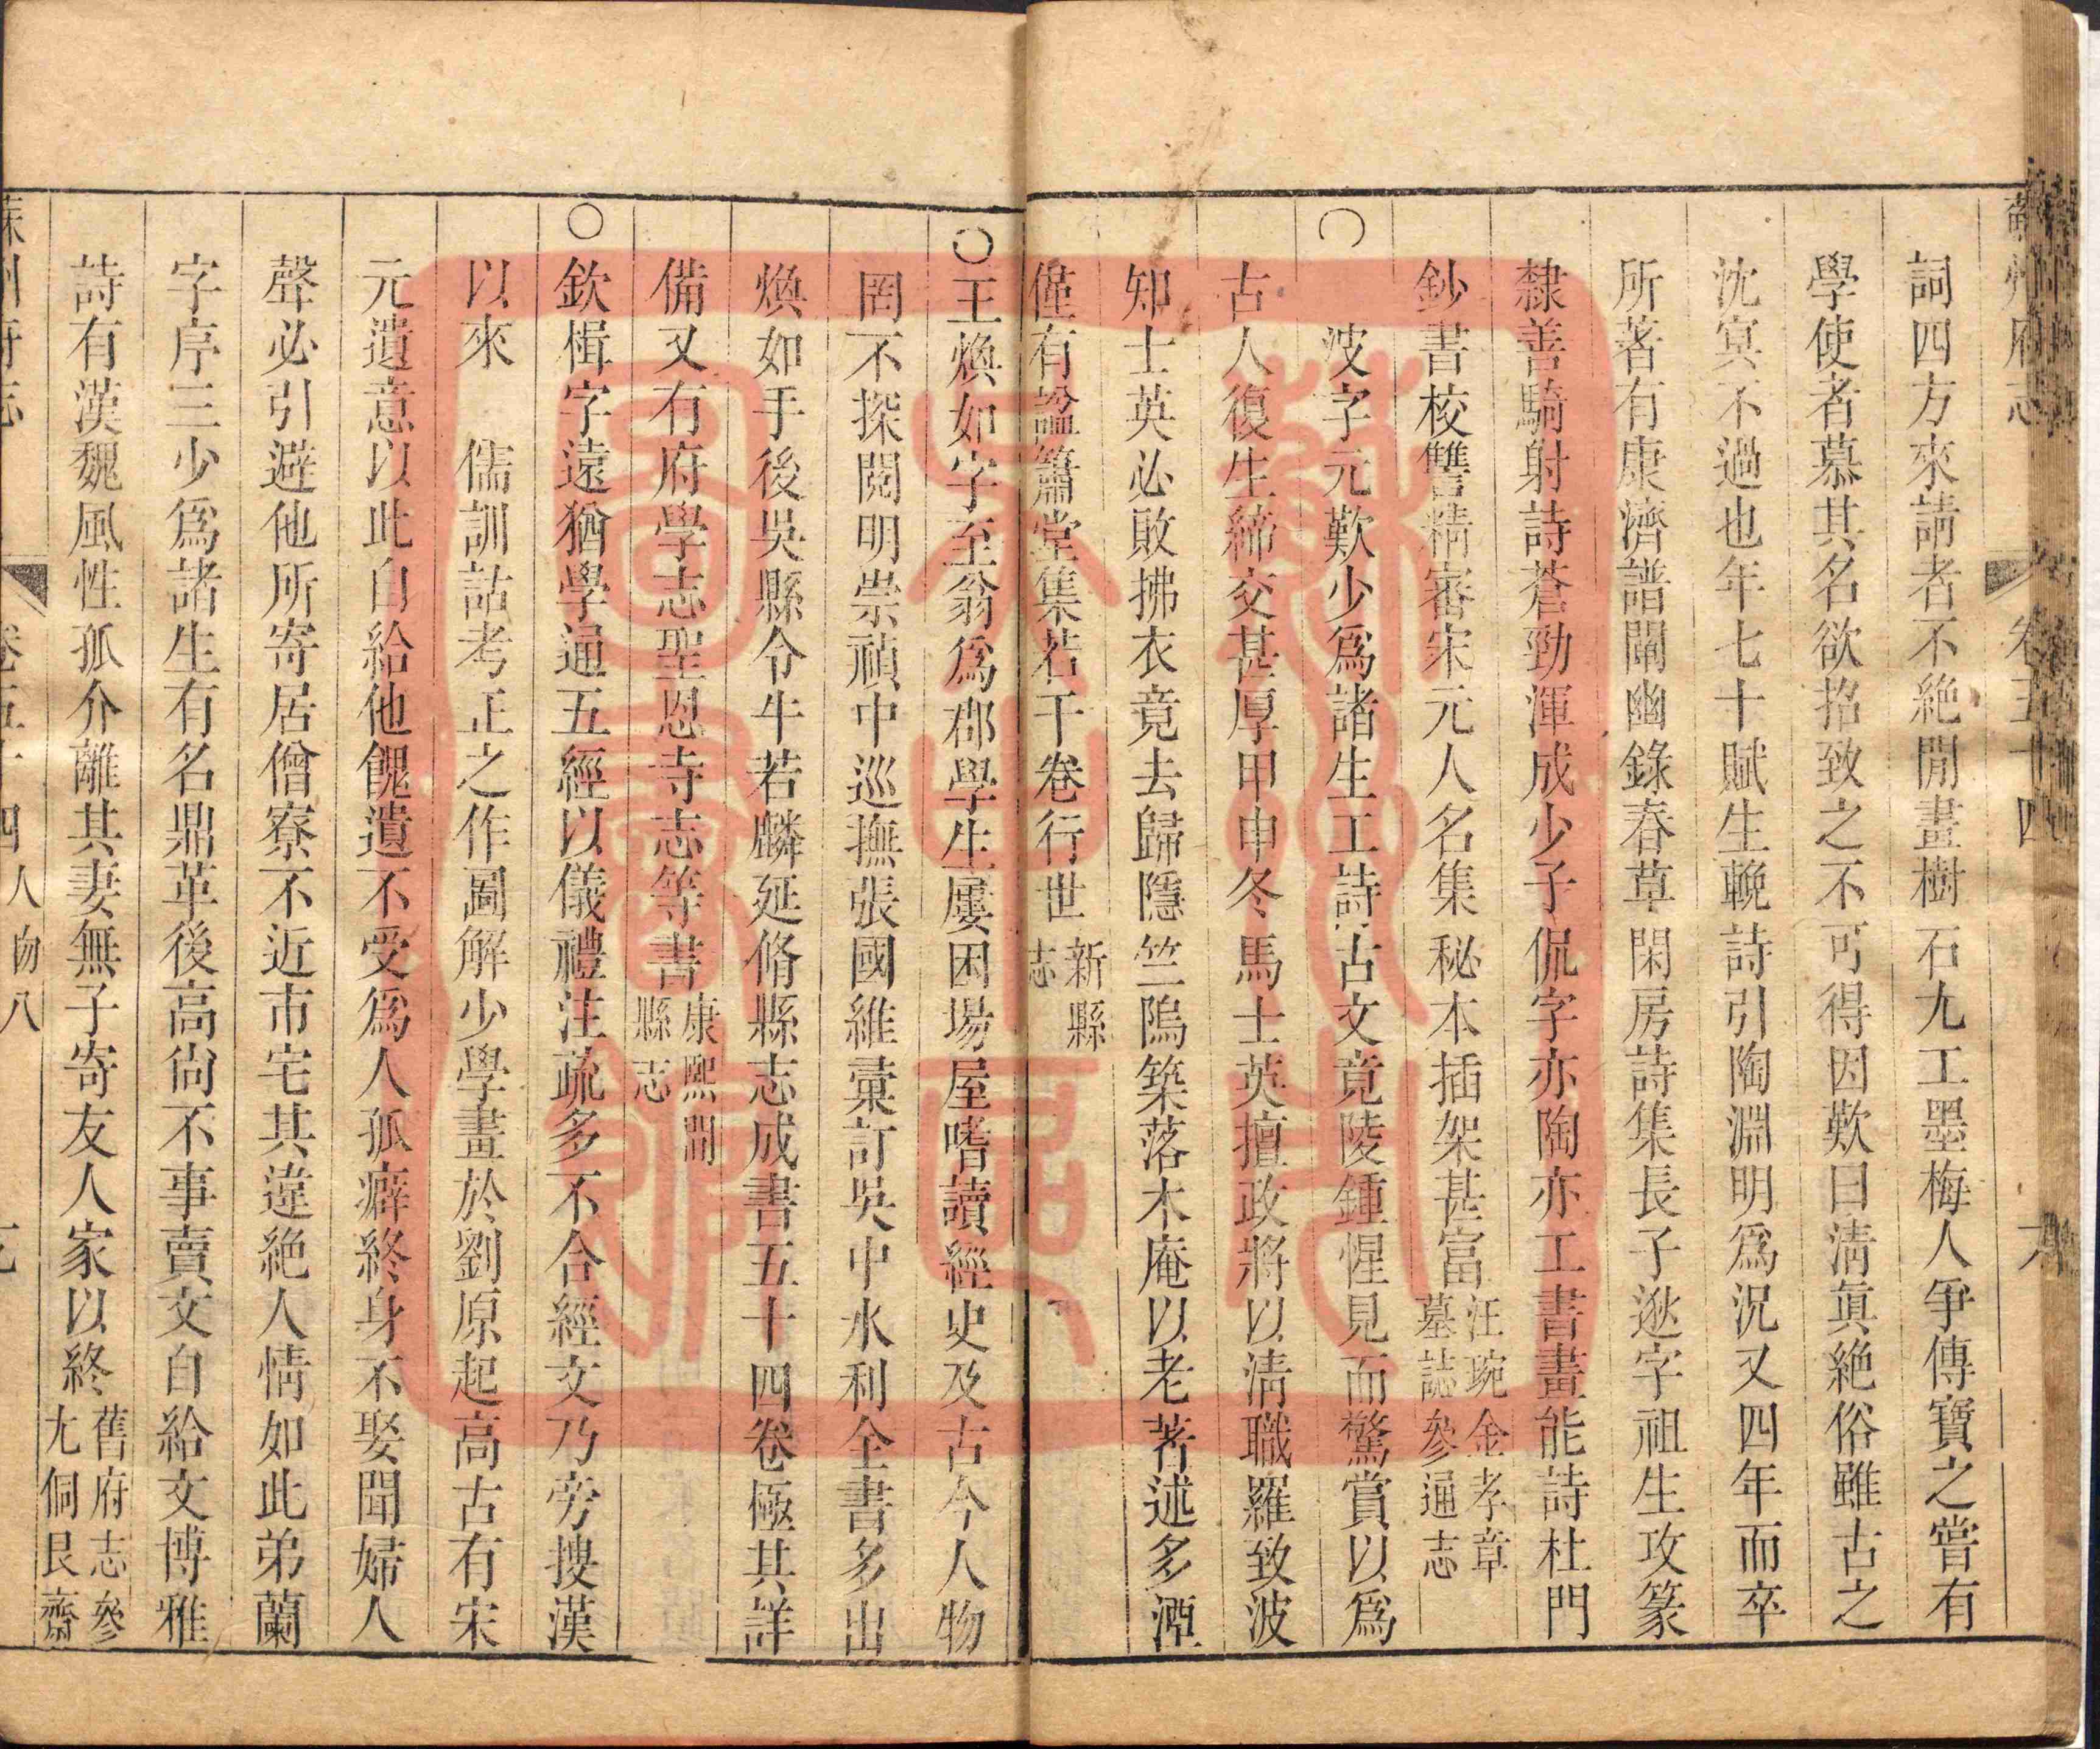 蘇州府志 卷五十四 六
詞四方來請者不絶閒畫樹石尢工墨梅人爭傳寶之嘗有
學使者慕其名欲招致之不可得因歎曰淸眞絶俗雖古之
沈冥不過也年七十賦生輓詩引陶淵明爲況又四年而卒
所著有康濟譜闡幽錄春草閑房詩集長子逖字祖生攻篆
隸善騎射詩蒼勁渾成少子侃字亦陶亦工書畫能詩杜門
鈔書校讐精審宋元人名集秘本插架甚富汪琬金孝章墓誌參通志
○ 波字元歎少爲諸生工詩古文竟陵鍾惺見而驚賞以爲
古人復生締交甚厚甲申冬馬士英擅政將以淸職羅致波
知士英必敗拂衣竟去歸隱竺塢築落木庵以老著述多湮
僅有謚簫堂集若干卷行世新縣志
○王煥如字至翁爲郡學生屢困場屋嗜讀經史及古今人物
罔不探閱明崇禎中巡撫張國維彙訂吳中水利全書多出
煥如手後吳縣令牛若麟延脩縣志成書五十四卷極其詳
備又有府學志聖恩寺志等書康熙閒縣志
○欽楫字遠猶學通五經以儀禮注疏多不合經文乃旁搜漢
以來 儒訓詁考正之作圖解少學畫於劉原起高古有宋
元遺意以此自給他餽遺不受爲人孤癖終身不娶聞婦人
聲必引避他所寄居僧寮不近市宅其違絶人情如此弟蘭
字序三少爲諸生有名鼎革後高尙不事賣文自給文博雅
詩有漢魏風性孤介離其妻無子寄友人家以終舊府志參尢侗艮齋
蘇州府志 卷五十四 人物八